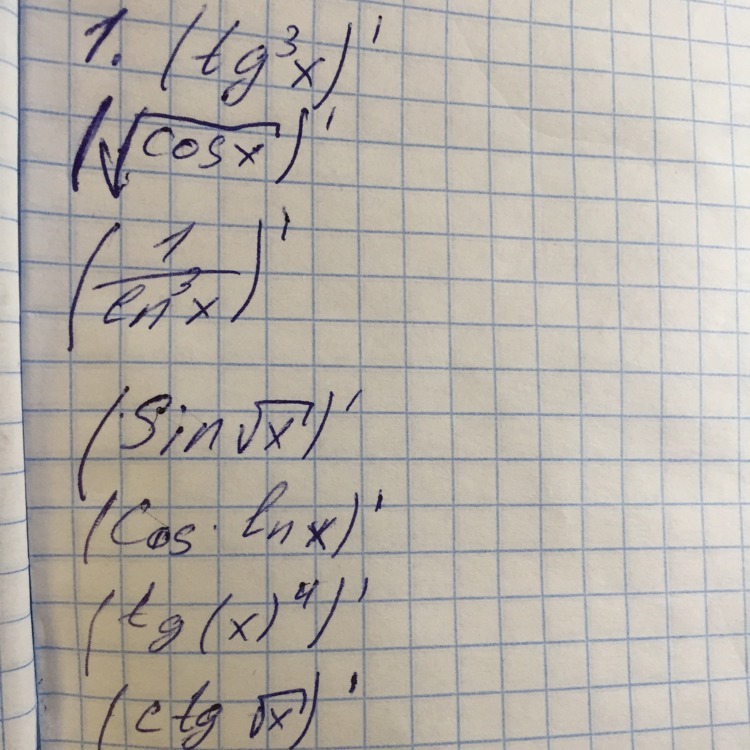 1. (tg³x)'
(√cos x)'
(1/ln³x)'
(Sin √x)'
(Cos · ln x)'
(tg (x)⁴)'
(ctg √x)'